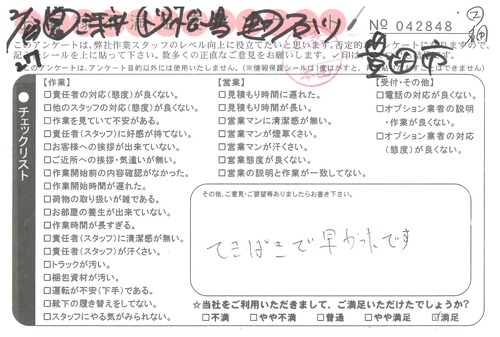 No 042848
このアンケートは、弊社作業スタッフのレベル向上に役立てたいと思います。否定的
記シールを上に貼って下さい。数多くの正直なご意見をお願いします。
豊田市
チェックリスト
【作業】
□責任者の対応(態度)が良くない。
□他のスタッフの対応(態度)が良くない。
□作業を見ていて不安がある。
□責任者(スタッフ)に好感が持てない。
□お客様への挨拶が出来ていない。
□ご近所への挨拶・気遣いが無い。
□作業開始前の内容確認がなかった。
□作業開始時間が遅れた。
□荷物の取り扱いが雑である。
□お部屋の養生が出来ていない。
□作業時間が長すぎる。
□責任者(スタッフ)に清潔感が無い。
□責任者(スタッフ)が汗くさい。
□トラックが汚い。
□梱包資材が汚い。
□運転が不安(下手)である。
□靴下の履き替えをしてない。
□スタッフにやる気がみられない。
【営業】
□見積もり時間に遅れた。
□見積もり時間が長い。
□営業マンに清潔感が無い。
□営業マンが煙草くさい。
□営業マンが汗くさい。
□営業態度が良くない。
□営業の説明と作業が一致してない。
【受付・その他】
□電話の対応が良くない。
□オプション業者の説明
・作業が良くない。
□オプション業者の対応
(態度)が良くない。
その他、ご意見・ご要望等ありましたらお書き下さい。
てきぱきで早かったです
☆当社をご利用いただきまして、ご満足いただけたでしょうか？
□不満 □やや不満 □普通 □やや満足 ☑満足